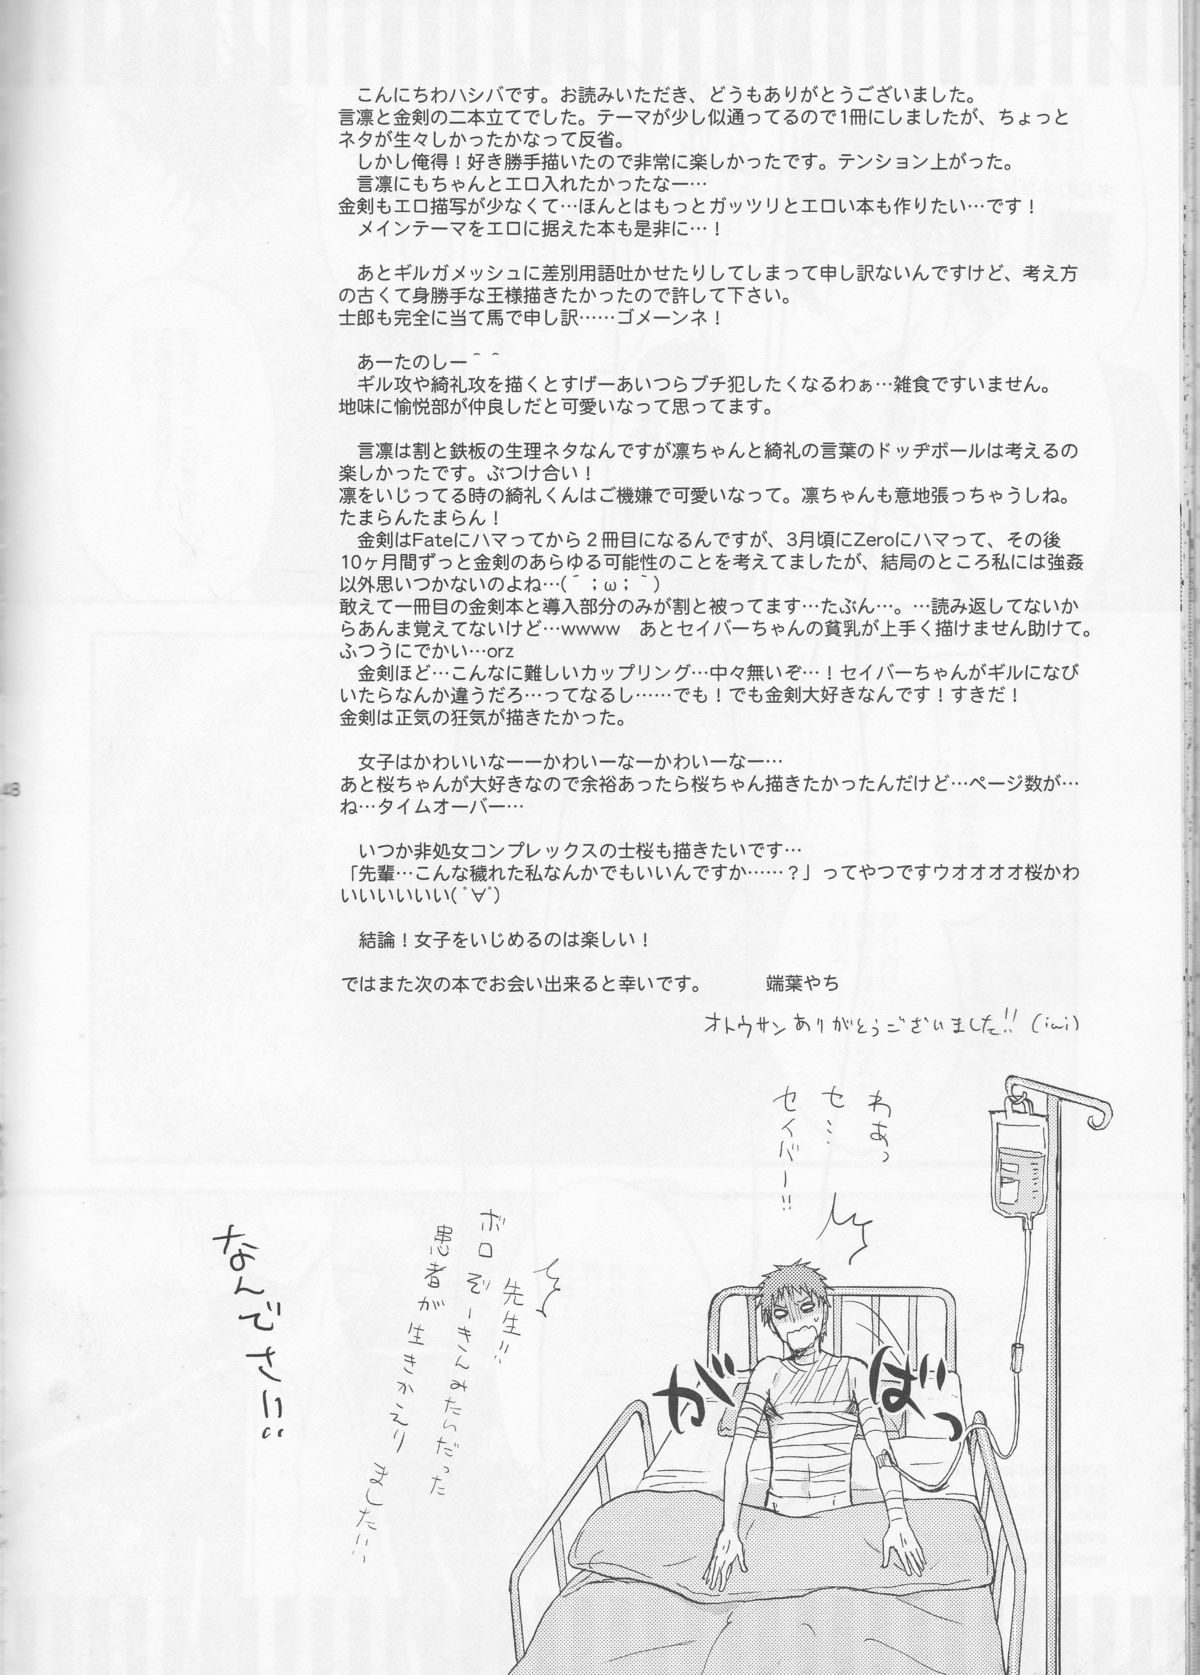 こんにちわハシバです。お読みいただき、どうもありがとうございました。
言凛と金剣の二本立てでした。テーマが少し似通ってるので1冊にしましたが、ちょっと
ネタが生々しかったかなって反省。
しかし俺得！好き勝手描いたので非常に楽しかったです。テンション上がった。
言凛にもちゃんとエロ入れたかったなー…
金剣もエロ描写が少なくて…ほんとはもっとガッツリとエロい本も作りたい…です！
メインテーマをエロに据えた本も是非に…！
あとギルガメッシュに差別用語吐かせたりしてしまって申し訳ないんですけど、考え方
の古くて身勝手な王様描きたかったので許して下さい。
士郎も完全に当て馬で申し訳……ゴメーンネ！
あーたのしー＾＾
ギル攻や綺礼攻を描くとすげーあいつらブチ犯したくなるわぁ…雑食ですいません。
地味に愉悦部が仲良しだと可愛いなって思ってます。
言凛は割と鉄板の生理ネタなんですが凛ちゃんと綺礼の言葉のドッヂボールは考えるの
楽しかったです。ぶつけ合い！
凛をいじってる時の綺礼くんはご機嫌で可愛いなって。凛ちゃんも意地張っちゃうしね。
たまらんたまらん！
金剣はFateにハマってから２冊目になるんですが、3月頃にZeroにハマって、その後
10ヶ月間ずっと金剣のあらゆる可能性のことを考えてましたが、結局のところ私には強姦
以外思いつかないのよね…(´；ω；｀)
敢えて一冊目の金剣本と導入部分のみが割と被ってます…たぶん…。…読み返してないか
らあんま覚えてないけど…wwww　あとセイバーちゃんの貧乳が上手く描けません助けて。
ふつうにでかい…orz
金剣ほど…こんなに難しいカップリング…中々無いぞ…！セイバーちゃんがギルになび
いたらなんか違うだろ…ってなるし……でも！でも金剣大好きなんです！すきだ！
金剣は正気の狂気が描きたかった。
女子はかわいいなーーかわいーなーかわいーなー…
あと桜ちゃんが大好きなので余裕あったら桜ちゃん描きたかったんだけど…ページ数が…
ね…タイムオーバー…
いつか非処女コンプレックスの士桜も描きたいです…
「先輩…こんな穢れた私なんかでもいいんですか……？」ってやつですウオオオオ桜かわ
いいいいいい(ﾟ∀ﾟ)
結論！女子をいじめるのは楽しい！
ではまた次の本でお会い出来ると幸いです。　　　端葉やち
オトウサンありがとうございました!! (iwi)
48
わあっ
セ…
セイバー!!
がばっ
先生!!
ボロぞーきんみたいだった
患者が生きかえりました!!
なんでさ!!